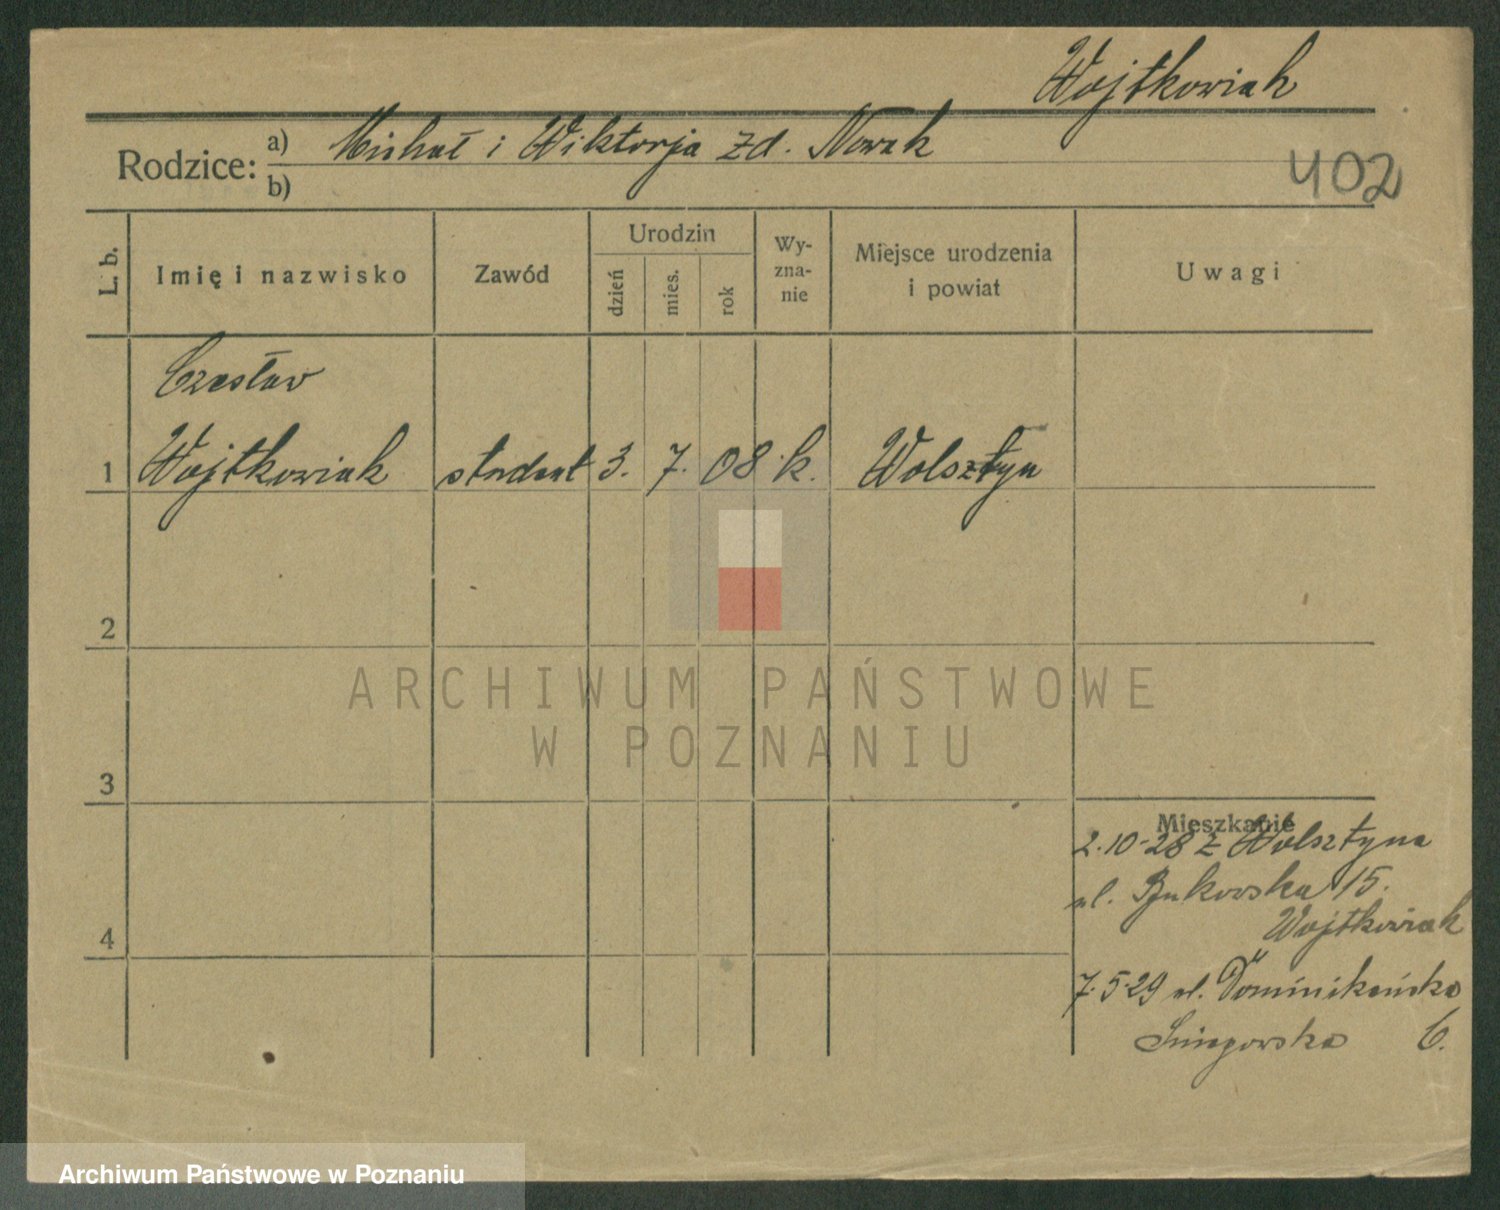 Wojtkowiak
Rodzice: a) Michał i Wiktorja zd. Nowak
b)
402
L. b. Imię i nazwisko Zawód Urodzin dzień mies. rok Wy-zna-nie Miejsce urodzenia i powiat Uwagi
Czesław
1 Wojtkowiak student 3. 7. 08 k. Wolsztyn
2
ARCHIWUM PAŃSTWOWE
W POZNANIU
3
Mieszkanie
2.10-28 z Wolsztyna
ul. Bukowska 15.
Wojtkowiak
4
7.5.29 ul. Dominikańska
6.
Archiwum Państwowe w Poznaniu